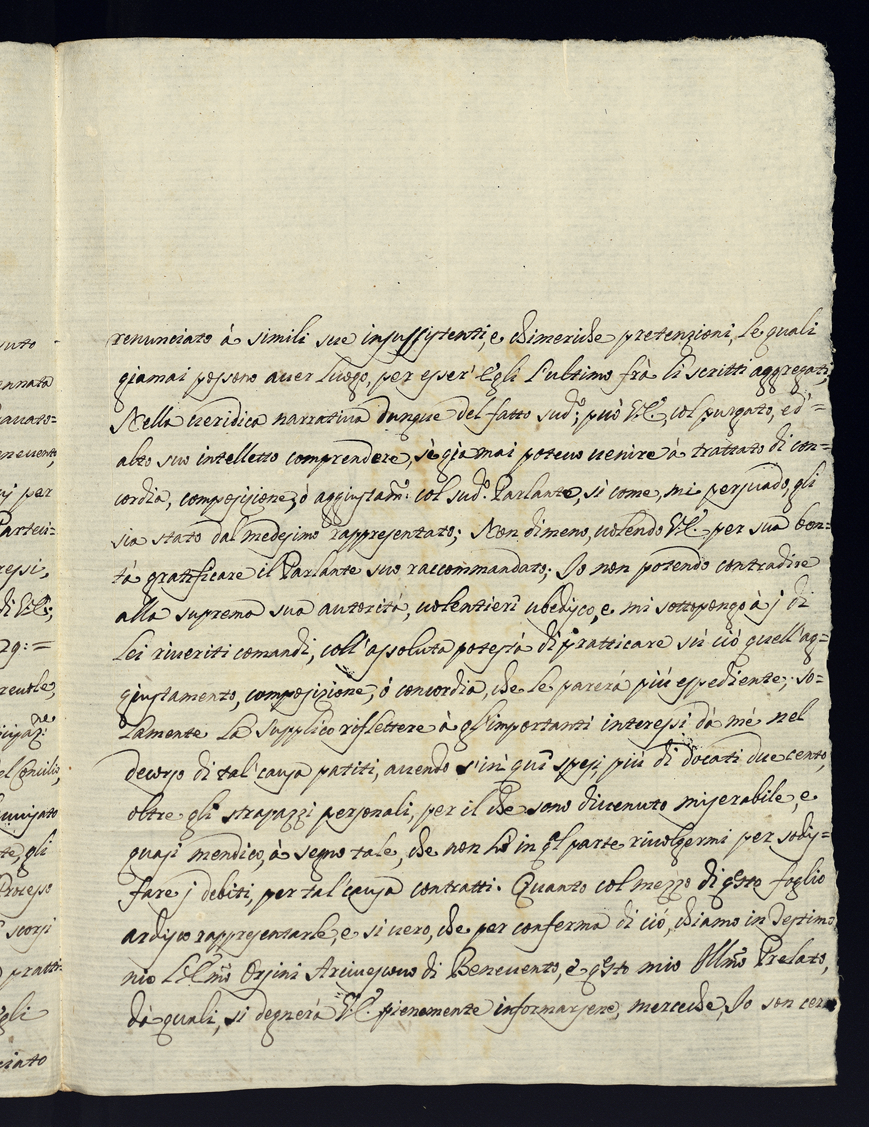 renunciato á simili sue insussistenti, e chimeriche pretenzioni, le quali
giamai possono auer luogo, per esser' Egli l'ultimo frà li scritti aggregati,
Nella ueridica narratiua dunque del fatto sud:º, può V.E., col purgato, ed'=
alto suo intelletto comprendere, sè giamai poteuo uenire à trattato di con=
cordia, composizione, ó aggiustam:º col sud:º Parlante, sì come, mi persuado, gli
sia stato dal medesimo rappresentato; Non dimeno, uolendo V.E. per sua bon=
tà gratificare il Parlante suo raccommandato; Io non potendo contradire
alla suprema sua autorità, uolentieri ubedisco, e mi sottopongo à j di
Lei riueriti comandi, coll'assoluta potestà di pratticare sù ciò quell'ag=
giustamento, composizione, ó concordia, che le parerà più espediente; so=
lamente La supplico riflettere à gl'importanti interessi dà mè nel
decorso di tal'causa patiti, auendo s'in'quì spesi, più di docati duecento,
oltre gli strapazzi personali, per il che sono diuenuto miserabile, e
quasi mendico, à segno tale, che non hò in ql parte riuolgermi per sodis=
fare j debiti, per tal'causa contratti. Quanto col mezzo di qsto foglio
ardisco rappresentarle, e si uero, che per conferma di ciò, chiamo in Testimo
nio L'Em̃o Orsini Arciuescouo di Beneuento, e qsto mio Illm̃o Prelato,
dà quali, si degnerà V.E. pienamente informarsene, mercecche, Io son cer
suto
ennata
beneuento,
ij per
Partici=
ressi,
di V.E.;
29:=
reuole,
el Concilio,
te, gli
Processo
scorsi
pratti=
gli
ciato